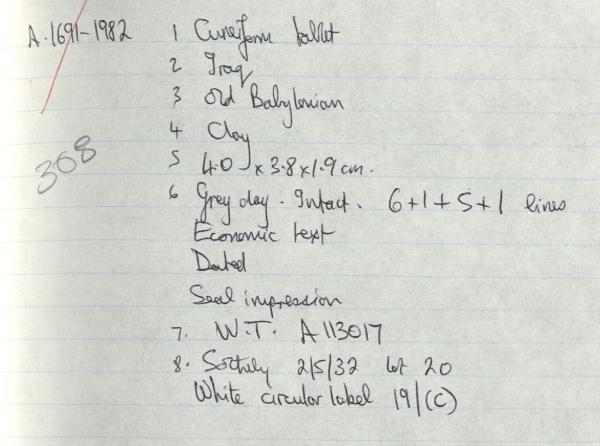 A.1691-1982 1 Cuneiform tablet
2 Iraq
3 Old Babylonian
4 Clay
5 4.0 x 3.8 x 1.9 cm.
308
6 Grey clay. Intact. 6+1+5+1 lines
Economic text
Dated
Seal impression
7. W.T. A113017
8. Sotheby 2/5/32 lot 20
White circular label 19/(C)